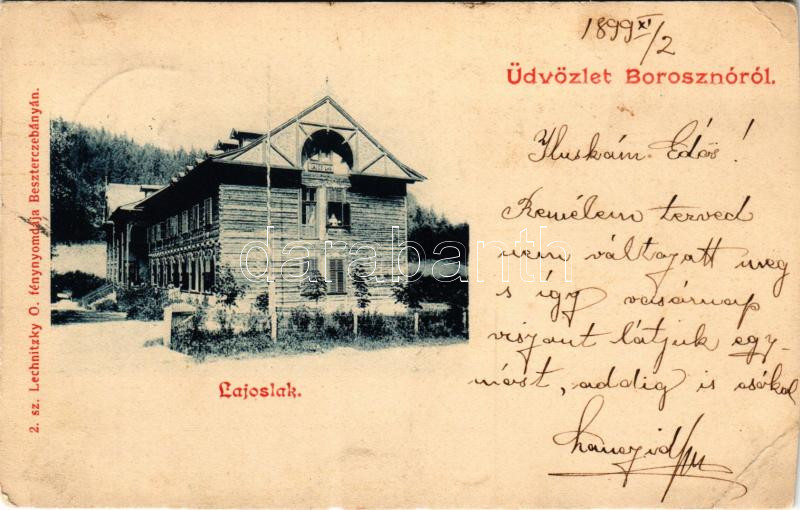 1899 XI/2
Üdvözlet Borosznóról.
Iluskám Édes!
Remélem terved
nem váltazatt meg
s így vasárnap
viszont látjuk egy-
mást, addig is csókol
2. sz. Lechnitzky O. fénynyomdája Beszterczebányán.
Lajoslak.
darabanth